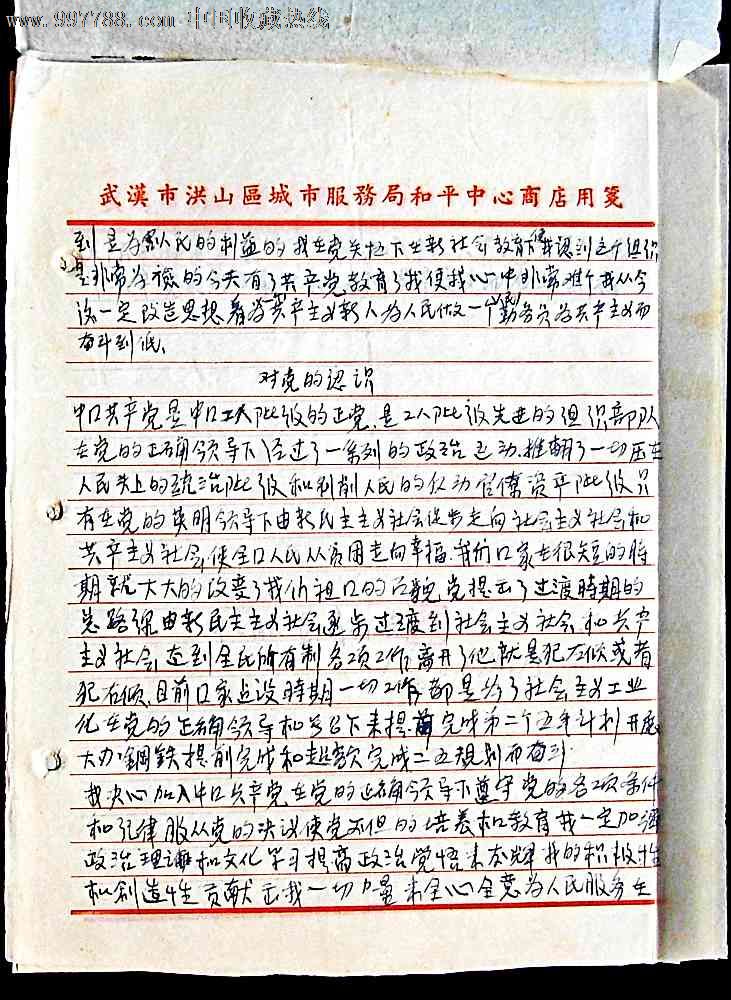 www.997788.com 中国收藏热线
武漢市洪山區城市服務局和平中心商店用箋
到是为人民的利益的我在党关怀下在新社会教育下使我認到这个组织
是非常为 的今天有了共产党教育了我使我心中非常难 我从今
后一定改造思想 为共产主义新人为人民做一个勤务员为共产主义而
奋斗到底、
对党的認识
中口共产党是中口工人阶级的政党,是工人阶级先进的组织部队
在党的正确领导下经过了一系列的政治运动.推翻了一切压在
人民头上的统治阶级和剥削人民的反动官僚资产阶级只
有在党的英明领导下由新民主主义社会逐步走向社会主义社会和
共产主义社会,使全口人民从贫困走向幸福.我们口家在很短的時
期就大大的改变了我们祖口的面貌,党提出了过渡時期的
总路線由新民主主义社会逐步过渡到社会主义社会和共产
主义社会,达到全民所有制各项工作,离开了他就是犯左倾或者
犯右倾,目前口家建设時期一切工作都是为了社会主义工业
化在党的正确领导和号召下来提前完成第二个五年计划开展
大办鋼鉄提前完成和超额完成二五规划而奋斗.
我决心加入中口共产党,在党的正确领导下遵守党的各项条件
和纪律服从党的决议使党不但的培养和教育我一定加强
政治理论和文化学习提高政治觉悟来发挥我的积极性
和创造性贡献出我一切力量来全心全意为人民服务在